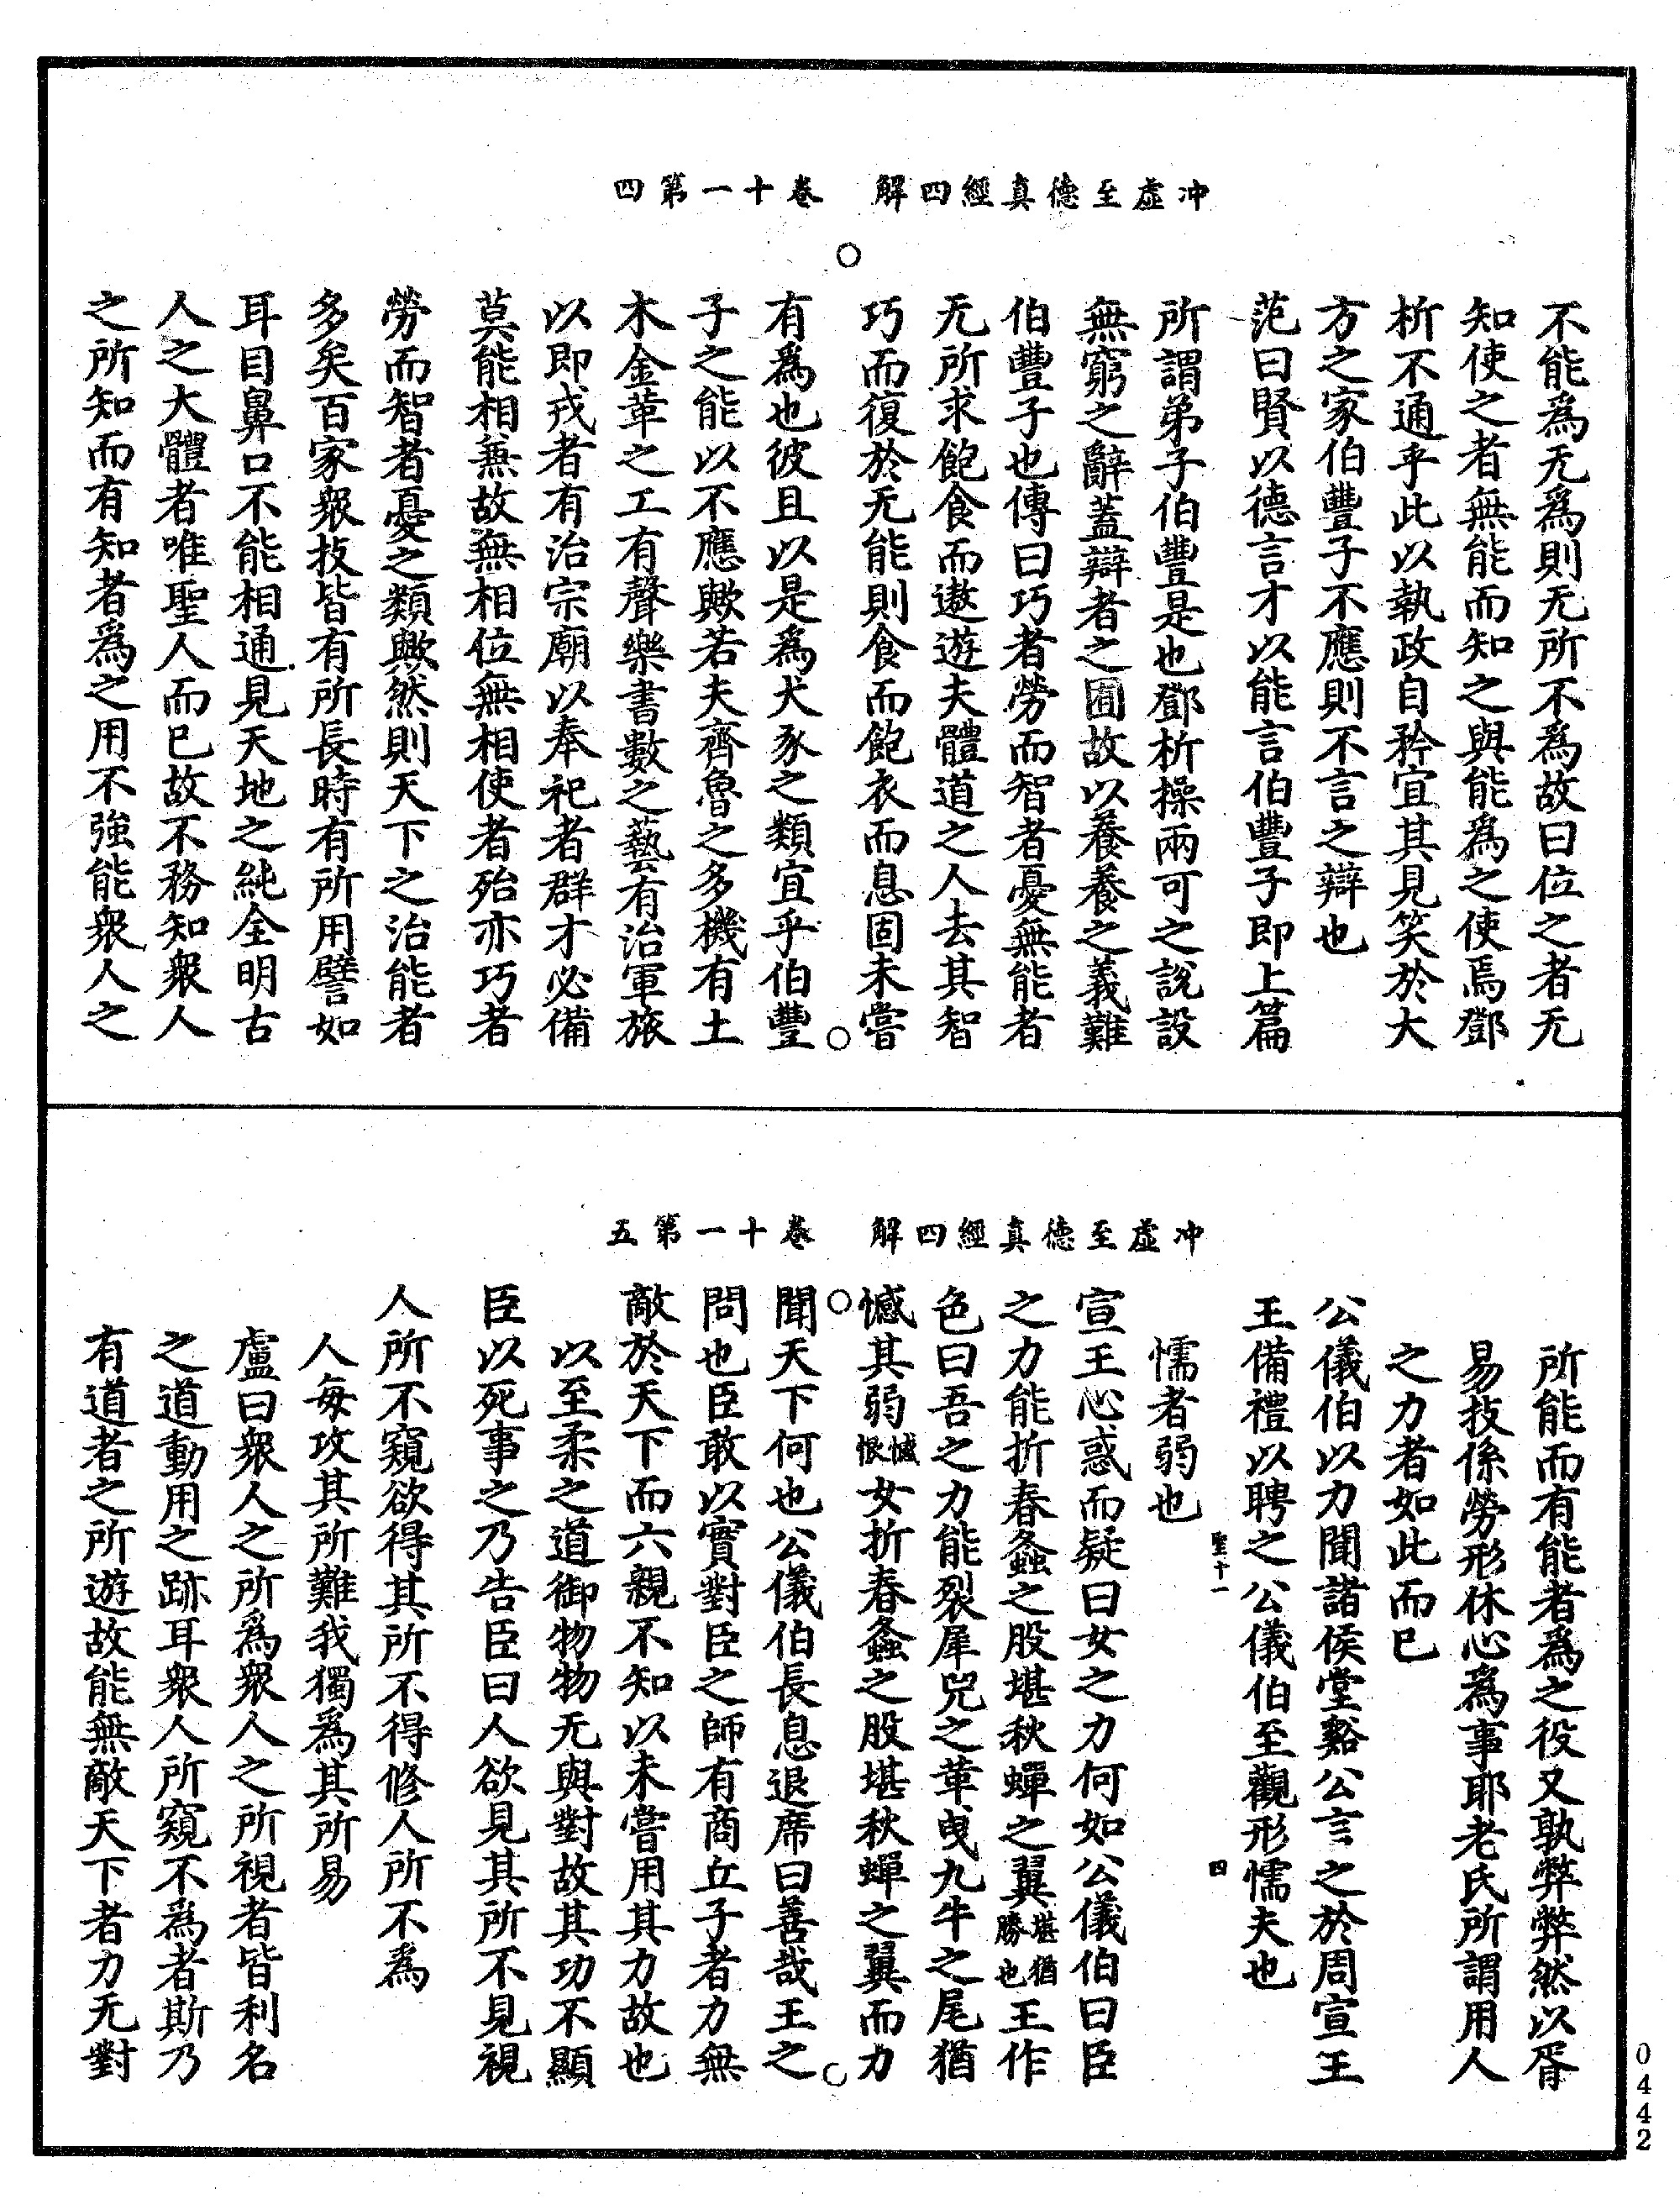 冲虛至德真經四解　卷十一第四
不能爲无爲則无所不爲故曰位之者无
知使之者無能而知之與能爲之使焉鄧
析不通乎此以執政自矜宜其見笑於大
方之家伯豐子不應則不言之辯也
范曰賢以德言才以能言伯豐子即上篇
所謂弟子伯豐是也鄧析操兩可之說設
無窮之辭蓋辯者之囿故以養養之義難
伯豐子也傳曰巧者勞而智者憂無能者
无所求飽食而遨遊夫體道之人去其智
巧而復於无能則食而飽衣而息固未嘗
有爲也彼且以是爲犬豕之類宜乎伯豐
子之能以不應歟若夫齊魯之多機有土
木金革之工有聲樂書數之藝有治軍旅
以即戎者有治宗廟以奉祀者群才必備
莫能相兼故無相位無相使者殆亦巧者
勞而智者憂之類歟然則天下之治能者
多矣百家衆技皆有所長時有所用譬如
耳目鼻口不能相通見天地之純全明古
人之大體者唯聖人而已故不務知衆人
之所知而有知者爲之用不強能衆人之
冲虛至德真經四解　卷十一第五
所能而有能者爲之役又孰弊弊然以胥
易技係勞形休心爲事耶老氏所謂用人
之力者如此而已
公儀伯以力聞諸侯堂谿公言之於周宣王
王備禮以聘之公儀伯至觀形懦夫也
聖十一　四
懦者弱也
宣王心惑而疑曰女之力何如公儀伯曰臣
之力能折春螽之股堪秋蟬之翼堪猶勝也王作
色曰吾之力能裂犀兕之革曳九牛之尾猶
憾其弱憾恨女折春螽之股堪秋蟬之翼而力
聞天下何也公儀伯長息退席曰善哉王之
問也臣敢以實對臣之師有商丘子者力無
敵於天下而六親不知以未嘗用其力故也
以至柔之道御物物无與對故其功不顯
臣以死事之乃告臣曰人欲見其所不見視
人所不窺欲得其所不得修人所不爲
人每攻其所難我獨爲其所易
盧曰衆人之所爲衆人之所視者皆利名
之道動用之跡耳衆人所窺不爲者斯乃
有道者之所遊故能無敵天下者力无對
0442